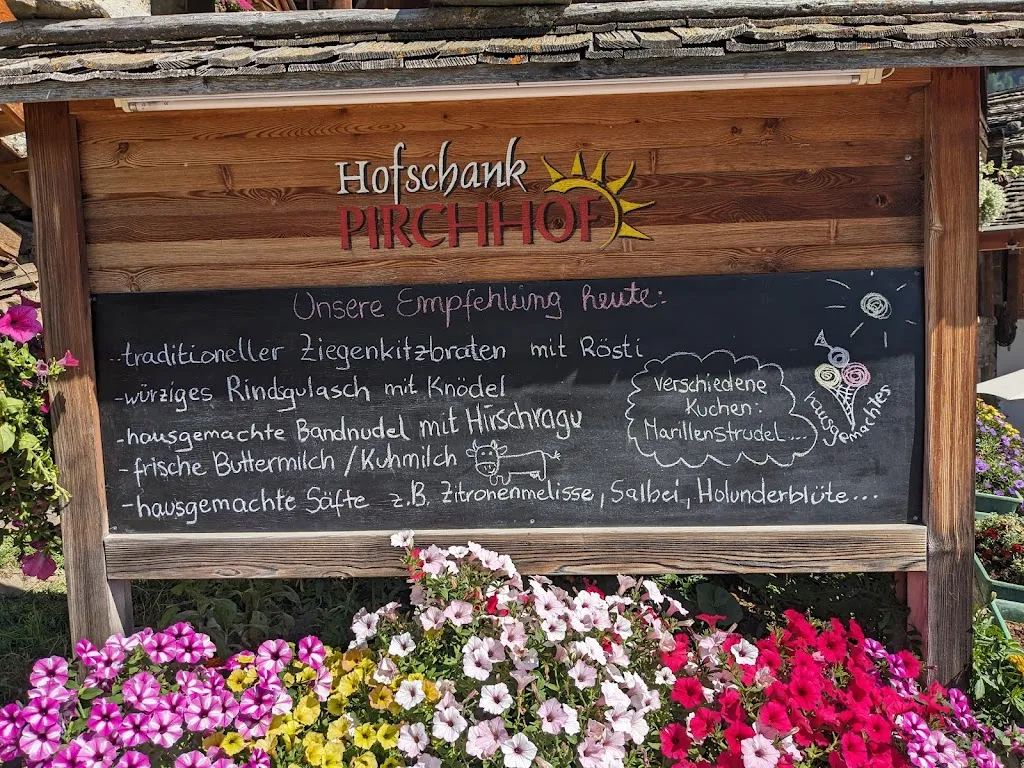 Hofschank
PIRCHHOF
Unsere Empfehlung heute:
-traditioneller Ziegenkitzbraten mit Rösti
-würziges Rindsgulasch mit Knödel
-hausgemachte Bandnudel mit Hirschragu
-frische Buttermilch / Kuhmilch
-hausgemachte Säfte z.B. Zitronenmelisse, Salbei, Holunderblüte...
Verschiedene
Kuchen:
Marillenstrudel...
hausgemachtes